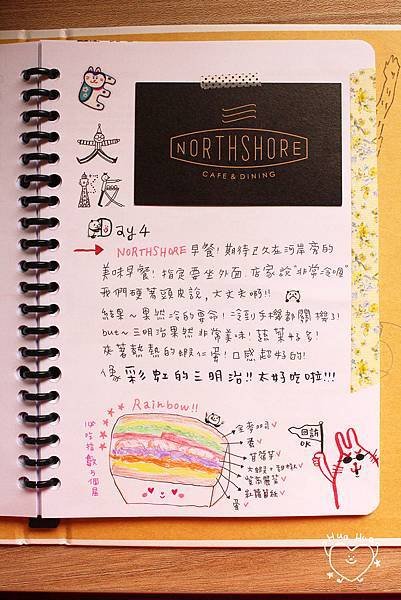 NORTHSHORE
CAFE & DINING
大阪
Day 4
NORTHSHORE 早餐! 期待已久在河岸旁的
美味早餐! 指定要坐外面, 店家說"非常冷喔"
我們硬著頭皮說, 大丈夫啊!!
結果~果然冷的要命! 冷到手機都關機了!
but~三明治果然非常美味! 蔬菜好多!
夾著熱熱的蝦仁蛋! 口感超好的!
像彩虹的三明治!! 太好吃啦!!!
Rainbow!!
全麥吐司
蛋
苜蓿芽
大蝦+酪梨
紫高麗菜
紅蘿蔔絲
蛋
必吃指數5個星
回訪
OK
Hua Hua